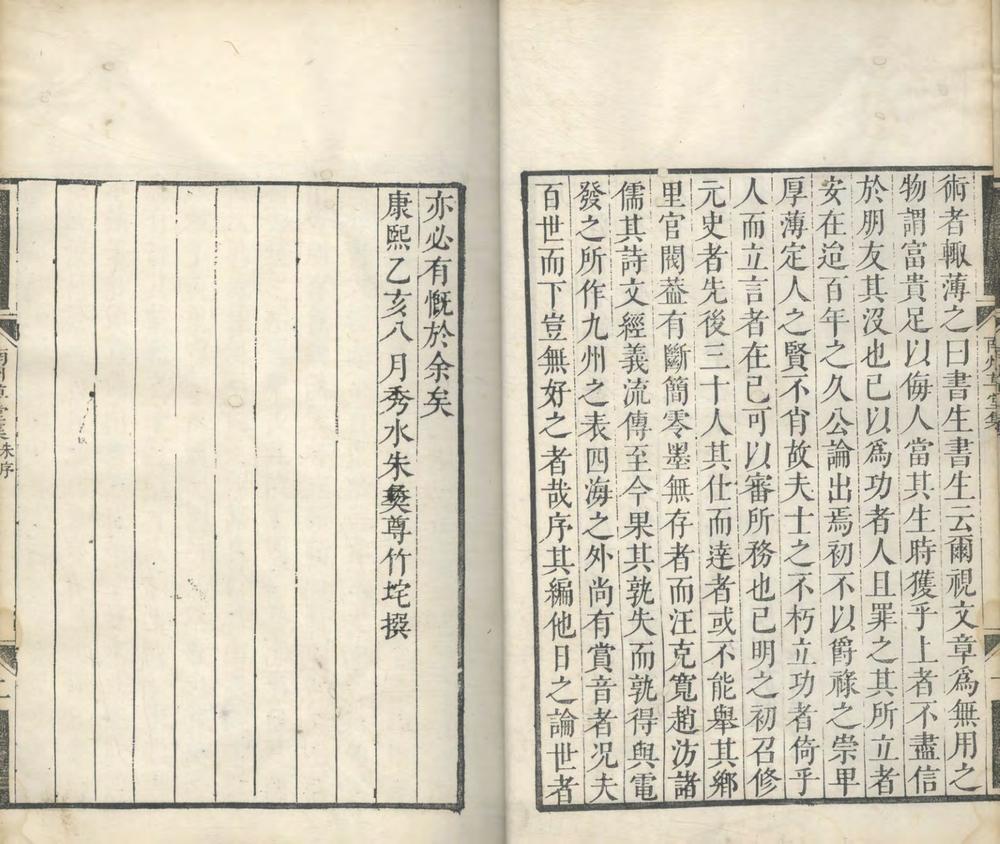 術者輙薄之曰書生書生云爾視文章爲無用之
物謂富貴足以侮人當其生時獲乎上者不盡信
於朋友其沒也已以爲功者人且罪之其所立者
安在迨百年之久公論出焉初不以爵祿之崇卑
厚薄定人之賢不肖故夫士之不朽立功者倚乎
人而立言者在已可以審所務也已明之初召修
元史者先後三十人其仕而達者或不能舉其鄉
里官閥葢有斷簡零墨無存者而汪克寬趙汸諸
儒其詩文經義流傳至今果其孰失而孰得與電
發之所作九州之表四海之外尚有賞音者况夫
百世而下豈無好之者哉序其編他日之論世者
亦必有慨於余矣
康熙乙亥八月秀水朱彝尊竹垞撰
南州草堂集
南州草堂集朱序
二